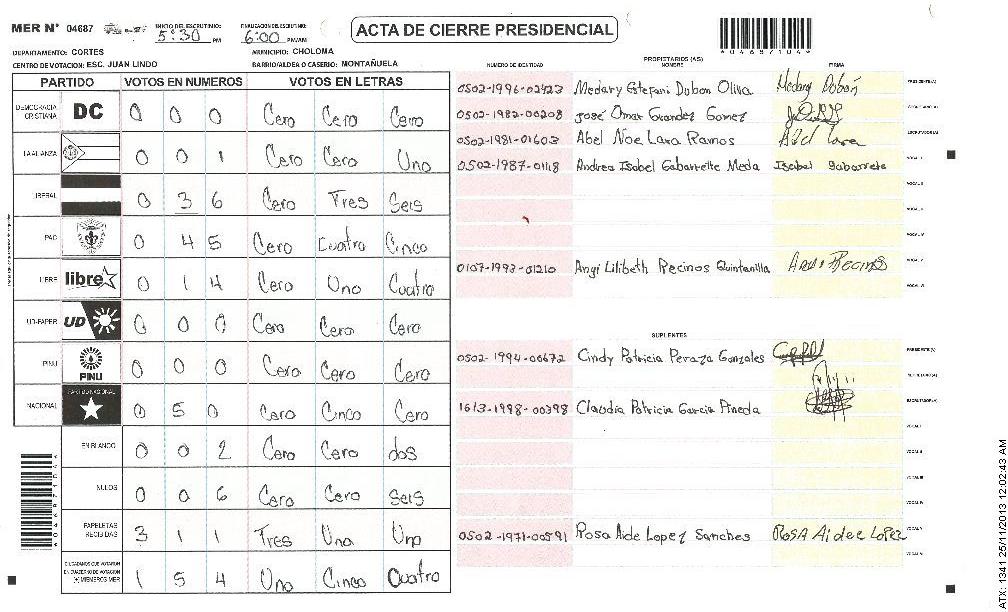 MER Nº 04687 INICIO DEL ESCRUTINIO: 5:30 PM FINALIZACION DEL ESCRUTINIO: 6:00 PM/AM
ACTA DE CIERRE PRESIDENCIAL
*04687104*
DEPARTAMENTO: CORTES MUNICIPIO: CHOLOMA
CENTRO DE VOTACION: ESC. JUAN LINDO BARRIO/ALDEA O CASERIO: MONTAÑUELA
PARTIDO VOTOS EN NUMEROS VOTOS EN LETRAS
DEMOCRACIA CRISTIANA DC 0 0 0 Cero Cero Cero
LA ALIANZA 0 0 1 Cero Cero Uno
LIBERAL 0 3 6 Cero Tres Seis
PAC 0 4 5 Cero Cuatro Cinco
LIBRE libre 0 1 4 Cero Uno Cuatro
UD-FAPER UD 0 0 0 Cero Cero Cero
PINU PINU 0 0 0 Cero Cero Cero
NACIONAL PARTIDO NACIONAL 0 5 0 Cero Cinco Cero
EN BLANCO 0 0 2 Cero Cero dos
NULOS 0 0 6 Cero Cero Seis
PAPELETAS RECIBIDAS 3 1 1 Tres Uno Uno
CIUDADANOS QUE VOTARON EN CUADERNO DE VOTACION (+) MIEMBROS MER 1 5 4 Uno Cinco Cuatro
PROPIETARIOS (AS)
NUMERO DE IDENTIDAD NOMBRE FIRMA
0502-1996-02423 Medary Estefani Dubon Oliva Medary Dubón PRESIDENTE(A)
0502-1982-00208 José Omar Grandez Gomez
0502-1981-01603 Abel Noe Lara Ramos Abel Lara
0502-1987-01118 Andrea Isabel Gabarrette Meda Isabel Gabarrete
0107-1993-01210 Angi Lilibeth Recinos Quintanilla Angi Recinos
SUPLENTES
0502-1994-00672 Cindy Patricia Peraza Gonzales PRESIDENTE(A)
1613-1998-00398 Claudia Patricia Garcia Pineda
0502-1971-00591 Rosa Aide Lopez Sanches Rosa Aidee Lopez
ATX: 1341 25/11/2013 12:02:43 AM